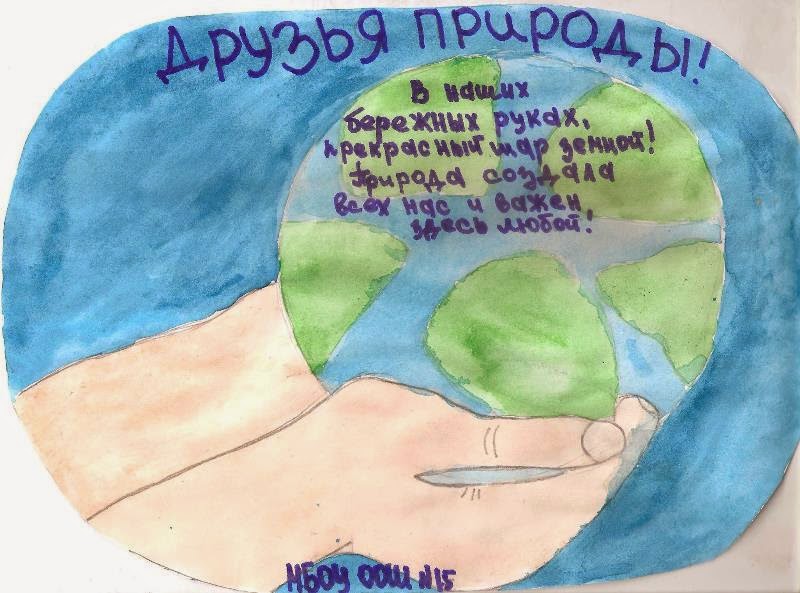 Друзья природы!
В наших
бережных руках,
прекрасный шар земной!
Природа создала
всех нас и важен
здесь любой!
МБОУ ООШ №15